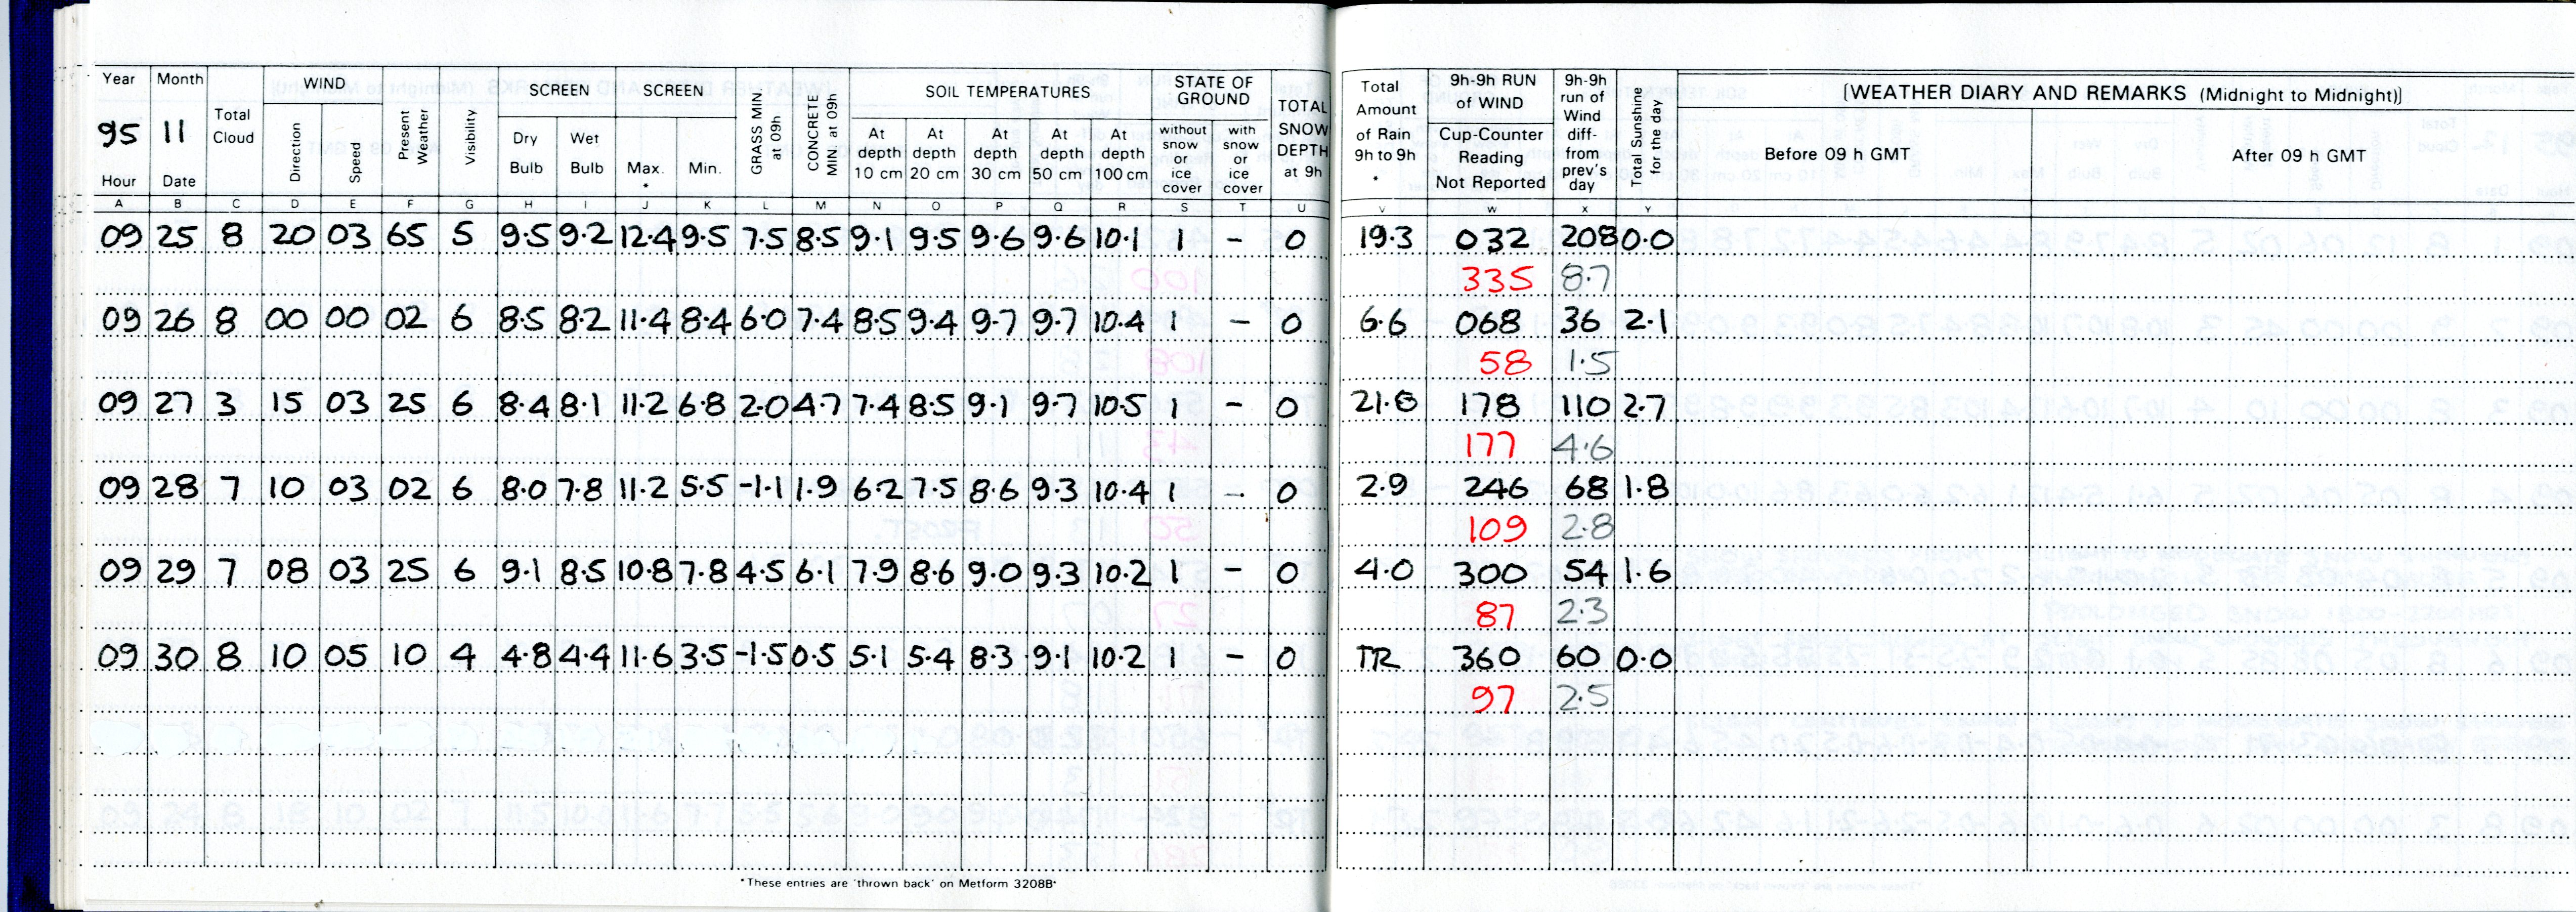 Year Month WIND SCREEN SCREEN SOIL TEMPERATURES STATE OF GROUND
95 11 Total Cloud Direction Speed Present Weather Visibility Dry Bulb Wet Bulb Max. * Min. GRASS MIN. at 09h CONCRETE MIN at 09h At depth 10 cm At depth 20 cm At depth 30 cm At depth 50 cm At depth 100 cm without snow or ice cover with snow or ice cover TOTAL SNOW DEPTH at 9h
Hour Date
Total Amount of Rain 9h to 9h * 9h-9h RUN of WIND Cup-Counter Reading Not Reported 9h-9h run of Wind diff- from prev's day Total Sunshine for the day [WEATHER DIARY AND REMARKS (Midnight to Midnight)]
Before 09 h GMT After 09 h GMT
A B C D E F G H I J K L M N O P Q R S T U V W X Y
09 25 8 20 03 65 5 9.5 9.2 12.4 9.5 7.5 8.5 9.1 9.5 9.6 9.6 10.1 1 - 0 19.3 032 208 0.0
335 8.7
09 26 8 00 00 02 6 8.5 8.2 11.4 8.4 6.0 7.4 8.5 9.4 9.7 9.7 10.4 1 - 0 6.6 068 36 2.1
58 1.5
09 27 3 15 03 25 6 8.4 8.1 11.2 6.8 2.0 4.7 7.4 8.5 9.1 9.7 10.5 1 - 0 178 110 2.7
177 4.6
09 28 7 10 03 02 6 8.0 7.8 11.2 5.5 -1.1 1.9 6.2 7.5 8.6 9.3 10.4 1 - 0 2.9 246 68 1.8
109 2.8
09 29 7 08 03 25 6 9.1 8.5 10.8 7.8 4.5 6.1 7.9 8.6 9.0 9.3 10.2 1 - 0 4.0 300 54 1.6
87 2.3
09 30 8 10 05 10 4 4.8 4.4 11.6 3.5 -1.5 0.5 5.1 5.4 8.3 9.1 10.2 1 - 0 TR 360 60 0.0
97 2.5
*These entries are 'thrown back' on Metform 3208B*